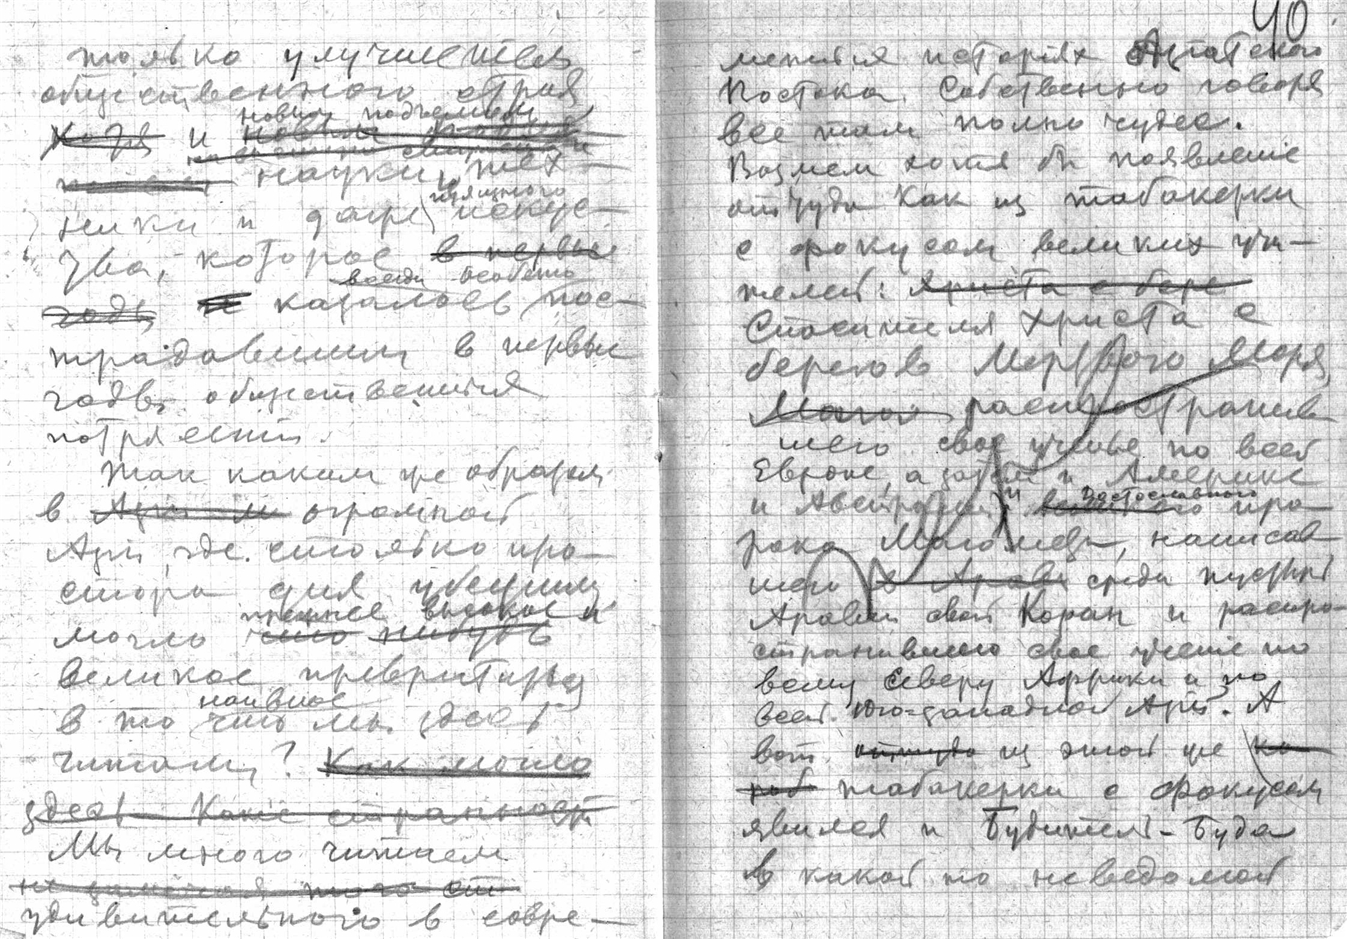 только улучшется
общественного строя
новым подъемом
хотя и новым
науки, тех-
изящного
ники и даже искус-
ства, которое в первые
всегда особено
годы казалось пос-
традавшим в первые
годы общественных
потрясений.
Так каким же образом
в огромной
Азии, где столько про-
стора для
нечто высокое и
могло что нибудь
великое превратиться
наивное
в то что мы здесь
читаем? Как могло
здесь Какие странности
Мы много читаем
не того от
удивительного в совре-
40
менных историях Азиатского
Востока. Собственно говоря
все там полно чудес.
Возмем хотя бы появление
оттуда как из табакерки
с фокусом великих учи-
телей: Христа с бере
Спасителя Христа с
берегов Мертвого Моря,
распространив
шего свое ученье по всей
Европе, а затем и Америке
и Австралии и
достославного про
рока Магомеда, написав
шего в Арави среди пустынь
Аравии свой Коран и распро-
странившего свое учение по
всему Северу Африки и по
всей Юго-западной Азии. А
вот оттуда из этой же ко
роб табакерки с фокусом
явился и Будитель-Буда
в какой то неведомой